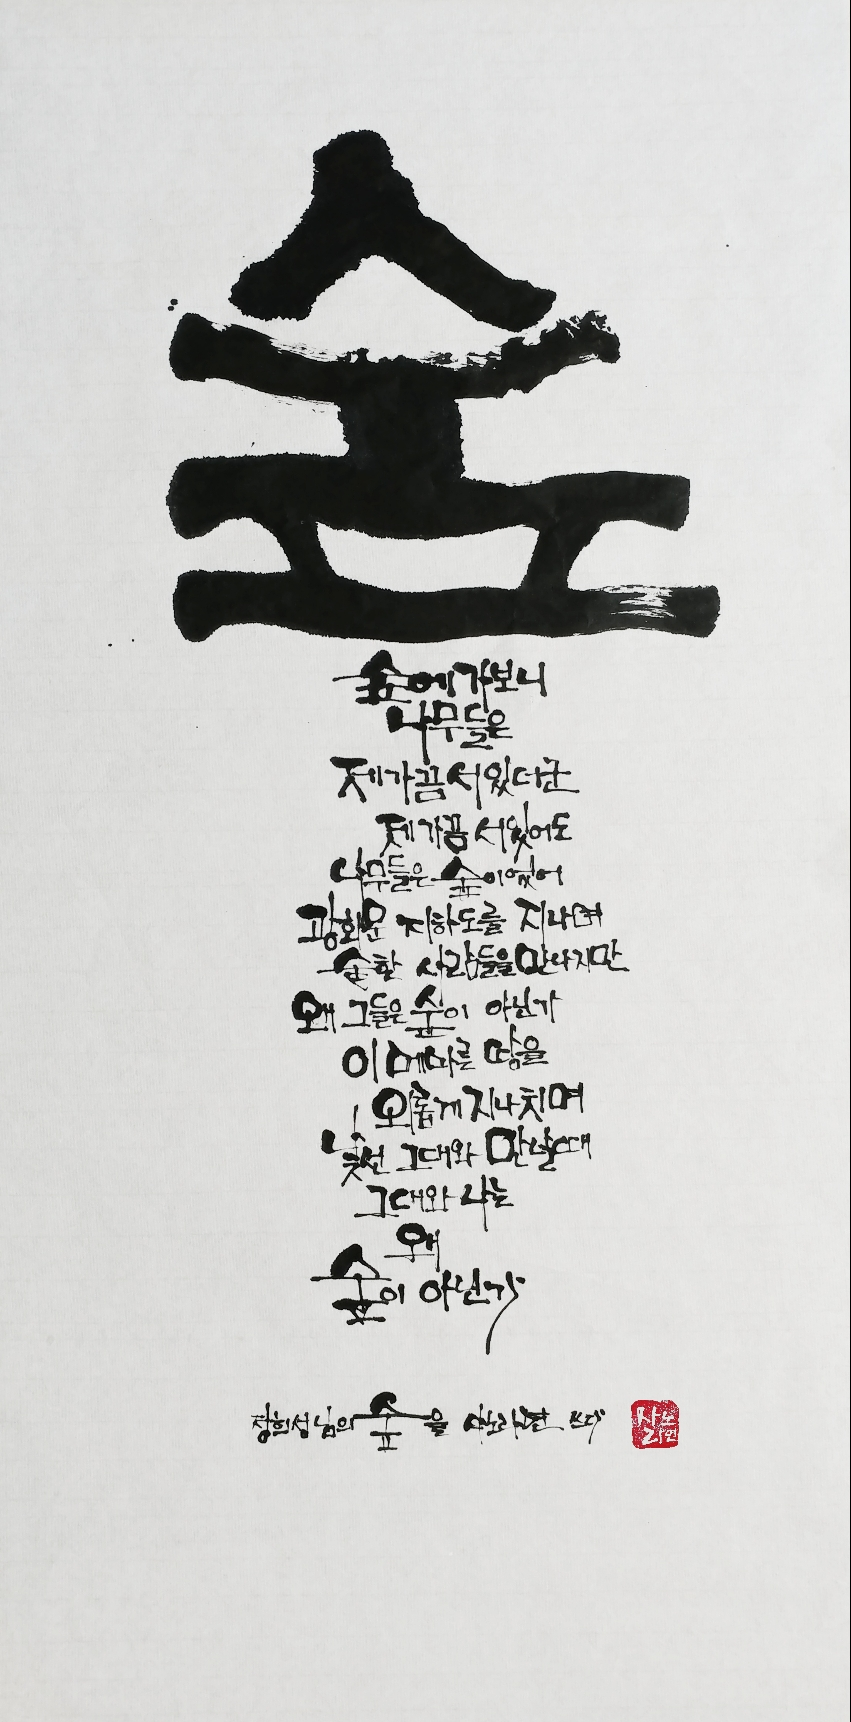 숲
숲에 가보니
나무들은
제가끔 서있더군
제가끔 서있어도
나무들은 숲이었어
광화문 지하도를 지나며
숱한 사람들을 만나지만
왜 그들은 숲이 아닌가
이 메마른 땅을
외롭게 지나치며
낯선 그대와 만날때
그대와 나는
왜
숲이 아닌가
정희성님의 숲을 쓰다